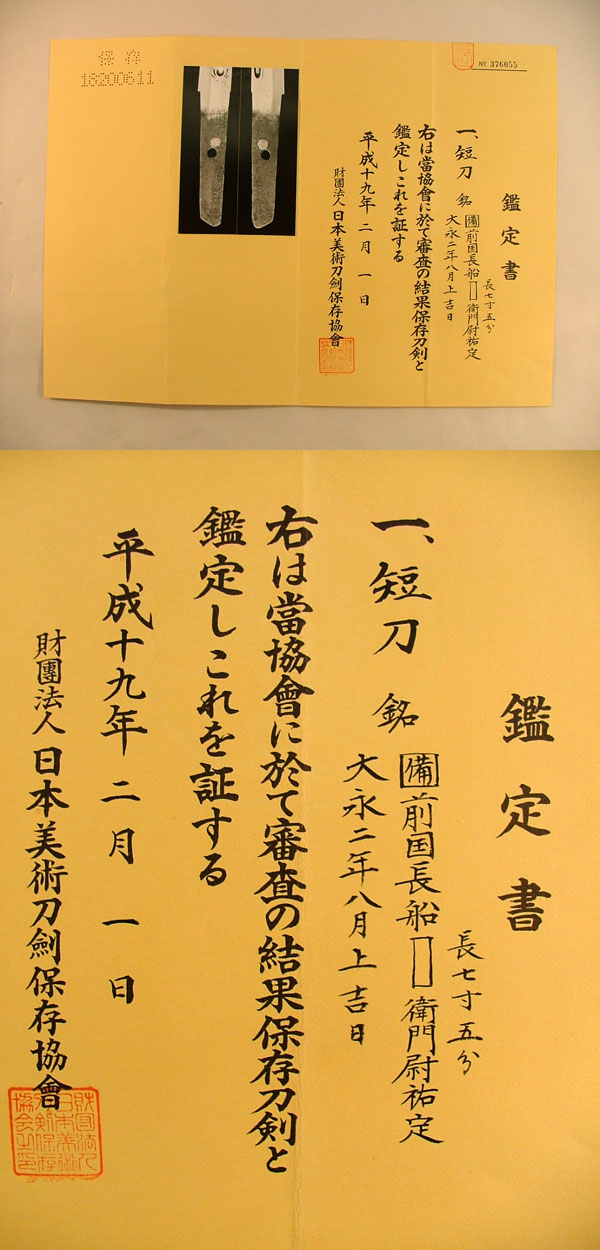 保存
18200611
№ 376055
鑑定書
長七寸五分
一、短刀 銘 備前国長船 衛門尉祐定
大永二年八月上吉日
右は當協會に於て審査の結果保存刀剣と
鑑定しこれを証する
平成十九年二月一日
財團法人日本美術刀劍保存協會
鑑定書
長七寸五分
一、短刀 銘 備前国長船 衛門尉祐定
大永二年八月上吉日
右は當協會に於て審査の結果保存刀剣と
鑑定しこれを証する
平成十九年二月一日
財團法人日本美術刀劍保存協會